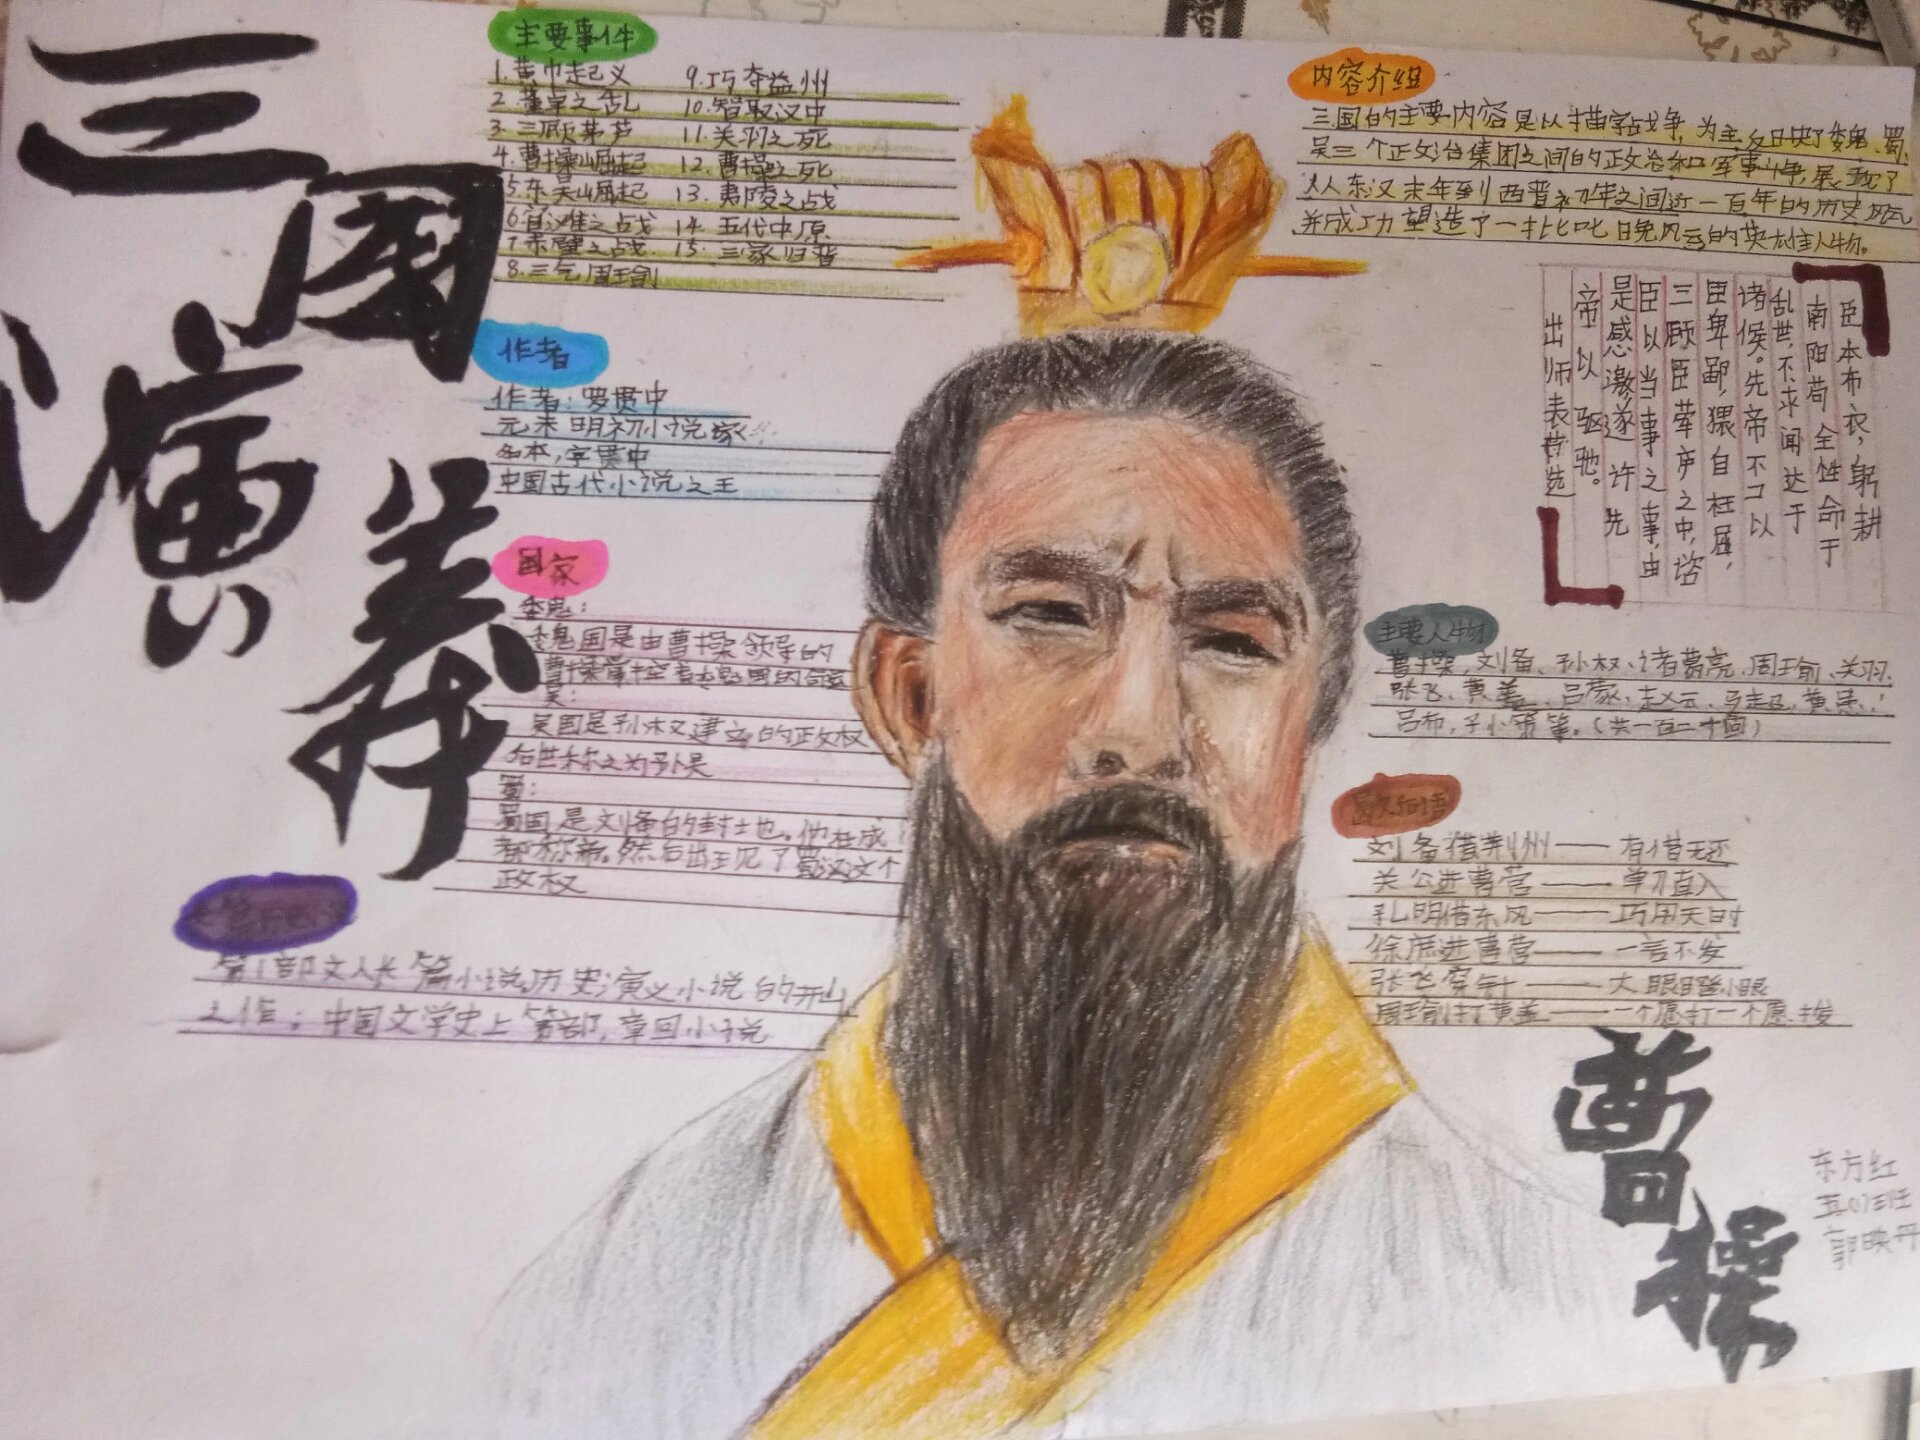 三国
演义
主要事件
1.黄巾起义
2.董卓之乱
3.三顾茅芦
4.曹操崛起
5.东吴崛起
6.官渡之战
7.赤壁之战
8.三气周瑜
9.巧夺益州
10.智取汉中
11.关羽之死
12.曹操之死
13.夷陵之战
14.五代中原
15.三家归晋
作者
作者:罗贯中
元末明初小说家
名本,字贯中
中国古代小说之王
国家
魏:
魏国是由曹操领导的
吴:
吴国是孙权建立的政权
后世称之为孙吴
蜀:
蜀国是刘备的封土也。他在成
都称帝。然后出现了蜀汉这个
政权
第1部文人长篇小说,历史演义小说的开山
之作;中国文学史上第部,章回小说
内容介绍
三国的主要内容是以描写战争,为主,反映了魏、蜀、
吴三个政治集团之间的政治和军事斗争,展现了
从东汉末年到西晋初年之间近一百年的历史风云
并成功塑造了一批叱咤风云的英雄人物。
臣本布衣,躬耕
南阳苟全性命于
乱世,不求闻达于
诸侯。先帝不以
臣卑鄙,猥自枉屈,
三顾臣草庐之中,谘
臣以当事之事,由
是感激,遂许先
帝以驱驰。
出师表节选
主要人物
曹操,刘备、孙权、诸葛亮,周瑜、关羽、
张飞、黄盖、吕蒙、赵云、马超,黄忠、
吕布,孙策等。(共一百二十回)
歇后语
刘备借荆州——有借无还
关公进曹营——单刀直入
孔明借东风——巧用天时
徐庶进曹营——一言不发
张飞穿针——大眼瞪小眼
周瑜打黄盖——一个愿打一个愿挨
曹操
东方红
五(1)班
郭映丹